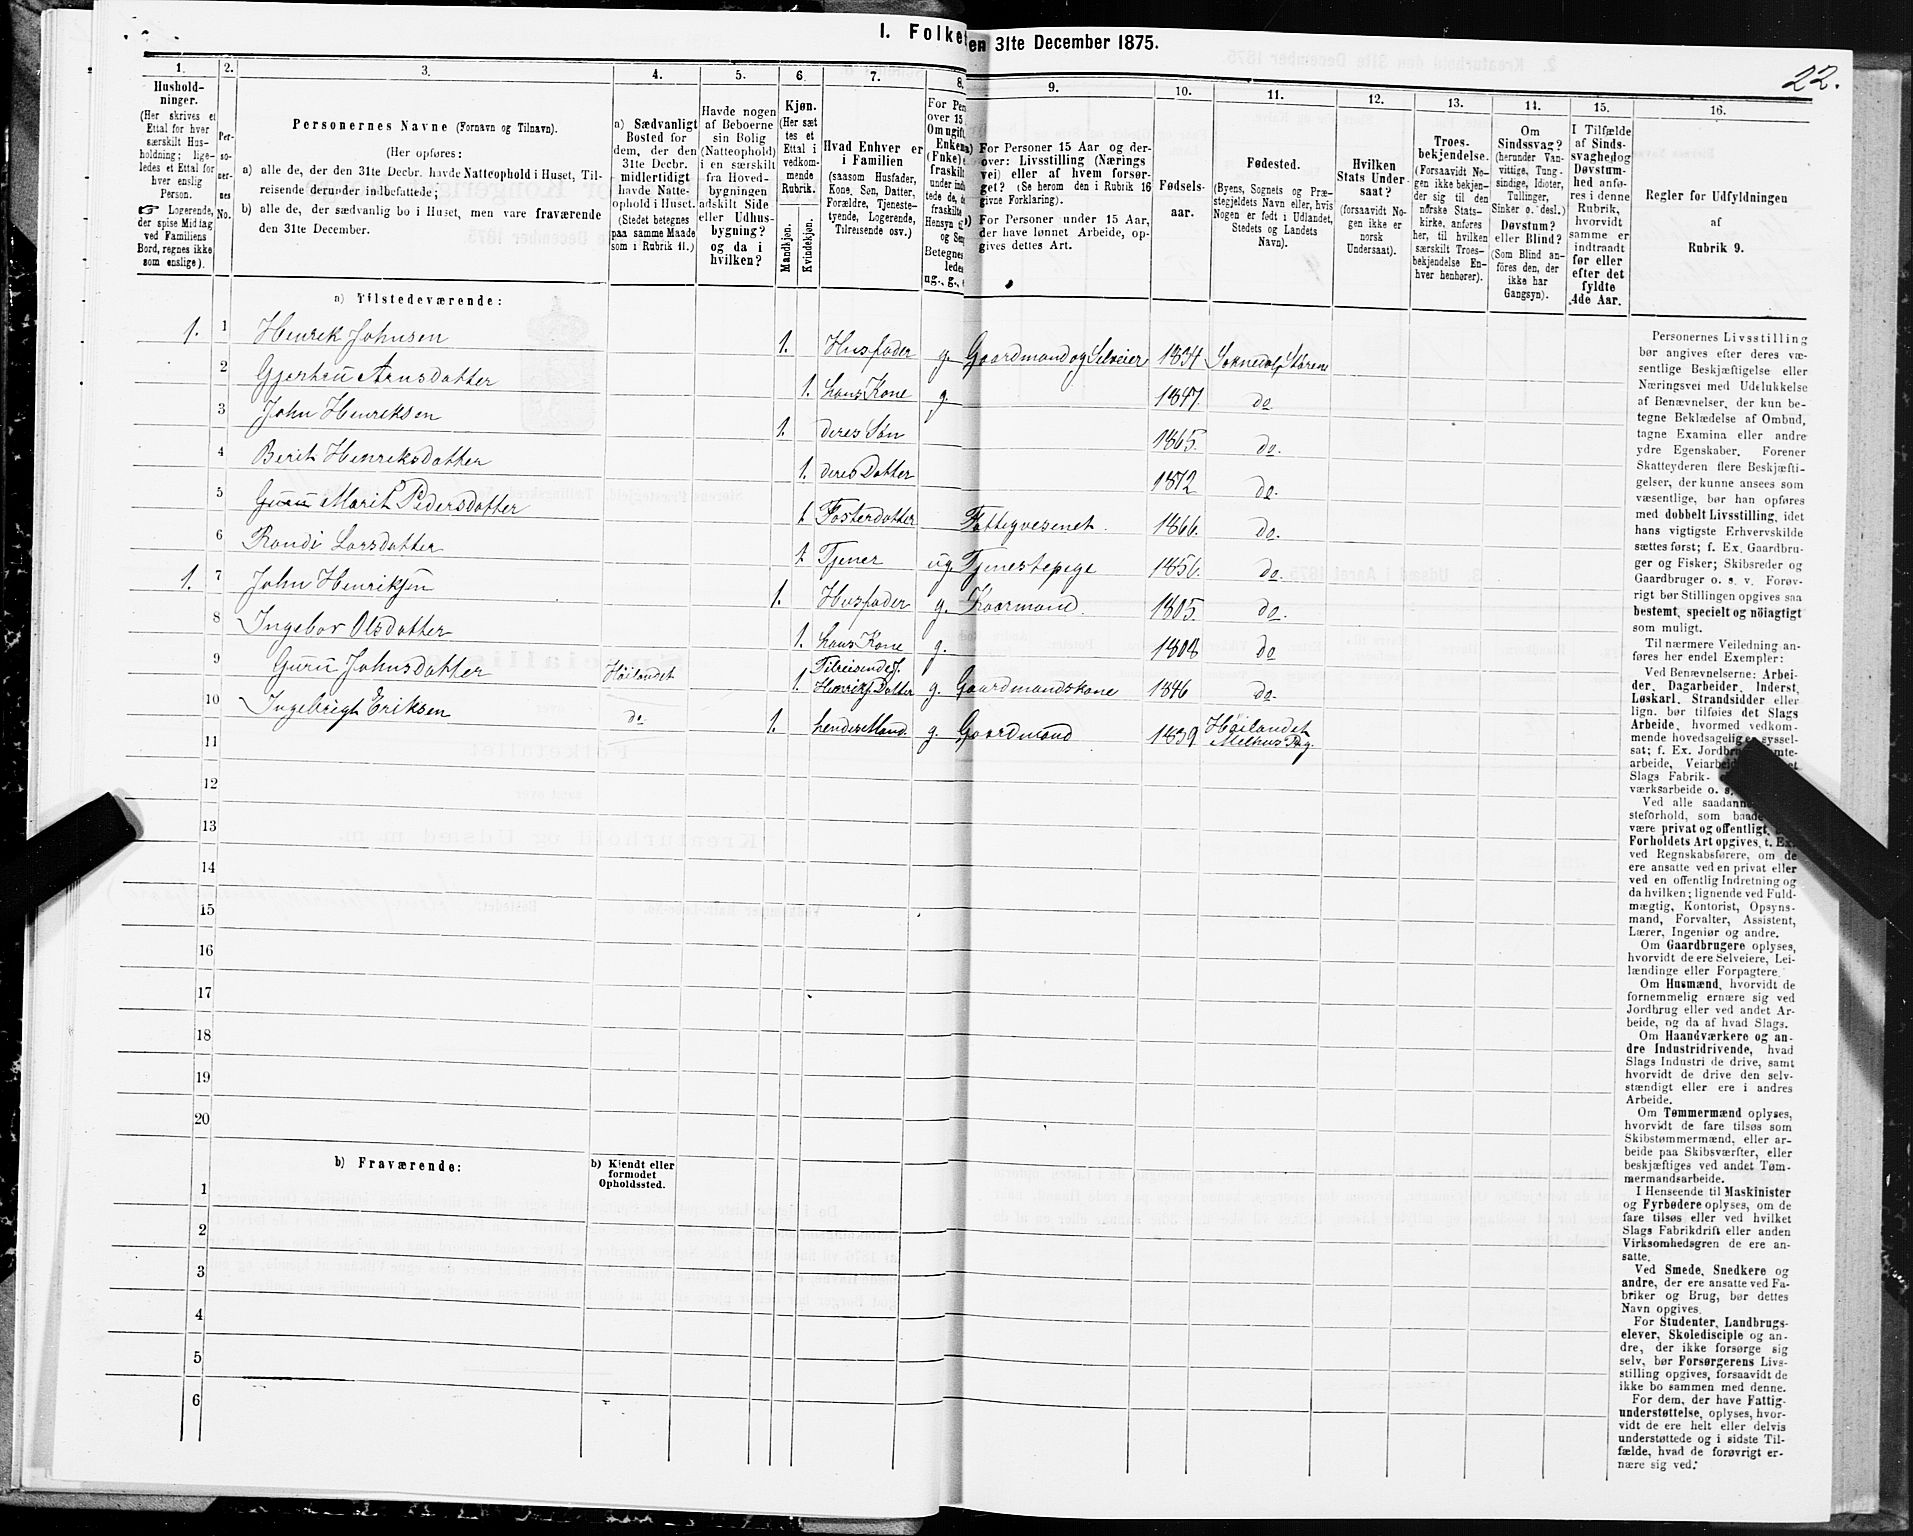 I. Folke
en 31te December 1875.
22.
1.
2.
3.
4.
5.
6.
7.
8.
9.
10.
11.
12.
13.
14.
15.
16.
Hushold-
ninger.
(Her skrives et
Ettal for hver
særskilt Hus-
holdning; lige-
ledes et Ettal for
hver enslig
Person.
☞ Logerende,
der spise Middag
ved Familiens
Bord, regnes ikke
som enslige).
Per-
so-
ner-
nes
No.
Personernes Navne (Fornavn og Tilnavn).
(Her opføres:
a) alle de, der den 31te Decbr. havde Natteophold i Huset, Til-
reisende derunder indbefattede;
b) alle de, der sædvanlig bo i Huset, men vare fraværende
den 31te December.
a) Sædvanligt
Bosted for
dem, der den
31te Decbr.
midlertidigt
havde Natte-
ophold i Huset.
(Stedet betegnes
paa samme Maade
som i Rubrik 11.)
Havde nogen
af Beboerne
sin Bolig
(Natteophold)
i en særskilt
fra Hoved-
bygningen
adskilt Side
eller Udhus-
bygning?
og da i
hvilken?
Kjøn.
(Her sæt
tes et
Ettal i
vedkom-
mende
Rubrik.
Mandkjøn.
Kvindekjøn.
Hvad Enhver er
i Familien
(saasom Husfader,
Kone, Søn, Datter,
Forældre, Tjeneste-
tyende, Logerende,
Tilreisende osv.)
For Per
over 15
Om ugift,
Enkem
(Fnke)
fraskilt
under indt
tede de, de
fraskilte
Hensyn ti
og Sen
Betegnes
ledes
ug., g.,
For Personer 15 Aar og der-
over: Livsstilling (Nærings
vei) eller af hvem forsør-
get? (Se herom den i Rubrik 16
givne Forklaring).
For Personer under 15 Aar,
der have lønnet Arbeide, op-
gives dettes Art.
Fødsels-
aar.
Fødested.
(Byens, Sognets og Præ-
stegjeldets Navn eller, hvis
Nogen er født i Udlandet,
Stedets og Landets
Navn).
Hvilken
Stats Under-
saat?
(forsaavidt No-
gen ikke er
norsk
Undersaat).
Troes-
bekjendelse.
(Forsaavidt No-
gen ikke bekjen-
der sig til den
norske Stats-
kirke, anføres
her, til hvilken
særskilt Troes-
bekjendelse En-
hver henhører).
Om
Sindssvag?
(herunder Van-
vittige, Tung-
sindige, Idioter,
Tullinger,
Sinker o. desl.)
Døvstum?
eller Blind?
(Som Blind an-
föres den, der
ikke har
Gangsyn).
I Tilfælde
af Sinds-
svaghedog
Døvstum-
hed anfø-
res i denne
Rubrik,
hvorvidt
samme er
indtraadt
før eller
efter det
fyldte
4de Aar.
Regler for Udfyldningen
af
Rubrik 9.
a) Tilstedeværende:
1. 1 Henrek Johnsen 1. Husfader g. Gaardmand og Selveier 1834 Soknedal Størens
2 Gjertru Arnsdatter 1. hans Kone g. 1847. do
3 John Henreksen 1. deres Søn 1865. do.
4 Berit Henreksdatter 1. deres Datter 1872 do.
5 Guru Marit Pedersdatter 1 Fosterdatter Fattigvesenet. 1866. do.
6 Randi Larsdatter 1. Tjener ug. Tjenestepige 1856. do.
1. 7 John Henriksen 1. Husfader g. Kaarmand. 1805. do.
8 Ingebor Olsdatter 1. hans Kone g. 1808 do
9 Guru Johnsdatter Höilandet 1. Tilreisende J. Henriks. Datter g. Gaardmandskone 1846 do.
10 Ingebrigt Eriksen do. 1. hendes Mand. g. Gaardmand 1839 Höilandet Melhus Pg.
11
12
13
14
15
16
17
18
19
20
b) Fraværende:
b) Kjendt eller
formodet
Opholdssted.
1
2
3
4
5
6
Personernes Livsstilling
bør angives efter deres væ-
sentlige Beskjæftigelse eller
Næringsvei med Udelukkelse
af Benævnelser, der kun be-
tegne Beklædelse af Ombud,
tagne Examina eller andre
ydre Egenskaber. Forener
Skatteyderen flere Beskjæfti-
gelser, der kunne ansees som
væsentlige, bør han opføres
med dobbelt Livsstilling, idet
hans vigtigste Erhvervskilde
sættes først; f. Ex. Gaardbru-
ger og Fisker; Skibsreder og
Gaardbruger o. s. v. Forøv-
rigt bør Stillingen opgives saa
bestemt, specielt og nöiagtigt
som muligt.
Til nærmere Veiledning an-
føres her endel Exempler:
Ved Benævnelserne: Arbei-
der, Dagarbeider, Inderst,
Løskarl, Strandsidder eller
lign. bør tilføies det Slags
Arbeide, hvormed vedkom-
mende hovedsagelig er syssel-
sat; f. Ex. Jordbr
arbeide, Veiarbei
Slags Fabrik-
værksarbeide o. s.
Ved alle saadan
steforhold, som baade
være privat og offentligt,
Forholdets Art opgives, t. Ex.
ved Regnskabsførere, om de
ere ansatte ved en privat eller
ved en offentlig Indretning og
da hvilken; lignende ved Fuld-
mægtig, Kontorist, Opsyns-
mand, Forvalter, Assistent,
Lærer, Ingeniør og andre.
Om Gaardbrugere oplyses,
hvorvidt de ere Selveiere, Lei-
lændinge eller Forpagtere.
Om Husmænd, hvorvidt de
fornemmelig ernære sig ved
Jordbrug eller ved andet Ar-
beide, og da af hvad Slags.
Om Haandværkere og an-
dre Industridrivende, hvad
Slags Industri de drive, samt
hvorvidt de drive den selv-
stændigt eller ere i andres
Arbeide.
Om Tømmermænd oplyses,
hvorvidt de fare tilsøs som
Skibstømmermænd, eller ar-
beide paa Skibsværfter, eller
beskjæftiges ved andet Tøm-
mermandsarbeide.
I Henseende til Maskinister
og Fyrbødere oplyses, om de
fare tilsøs eller ved hvilket
Slags Fabrikdrift eller anden
Virksomhedsgren de ere an-
satte.
Ved Smede, Snedkere og
andre, der ere ansatte ved Fa-
briker og Brug, bør dettes
Navn opgives.
For Studenter, Landbrugs-
elever, Skoledisciple og an-
dre, der ikke forsørge sig
selv, bør Forsørgerens Livs-
stilling opgives, forsaavidt de
ikke bo sammen med denne.
For dem, der have Fattig-
understøttelse, oplyses, hvor-
vidt de ere helt eller delvis
understøttede og i sidste Til-
fælde, hvad de forøvrigt er-
nære sig ved.